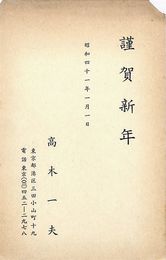 謹賀新年
昭和四十一年一月一日
高木一夫
東京都港区三田小山町十九
電話東京(四)四五二―二九七八